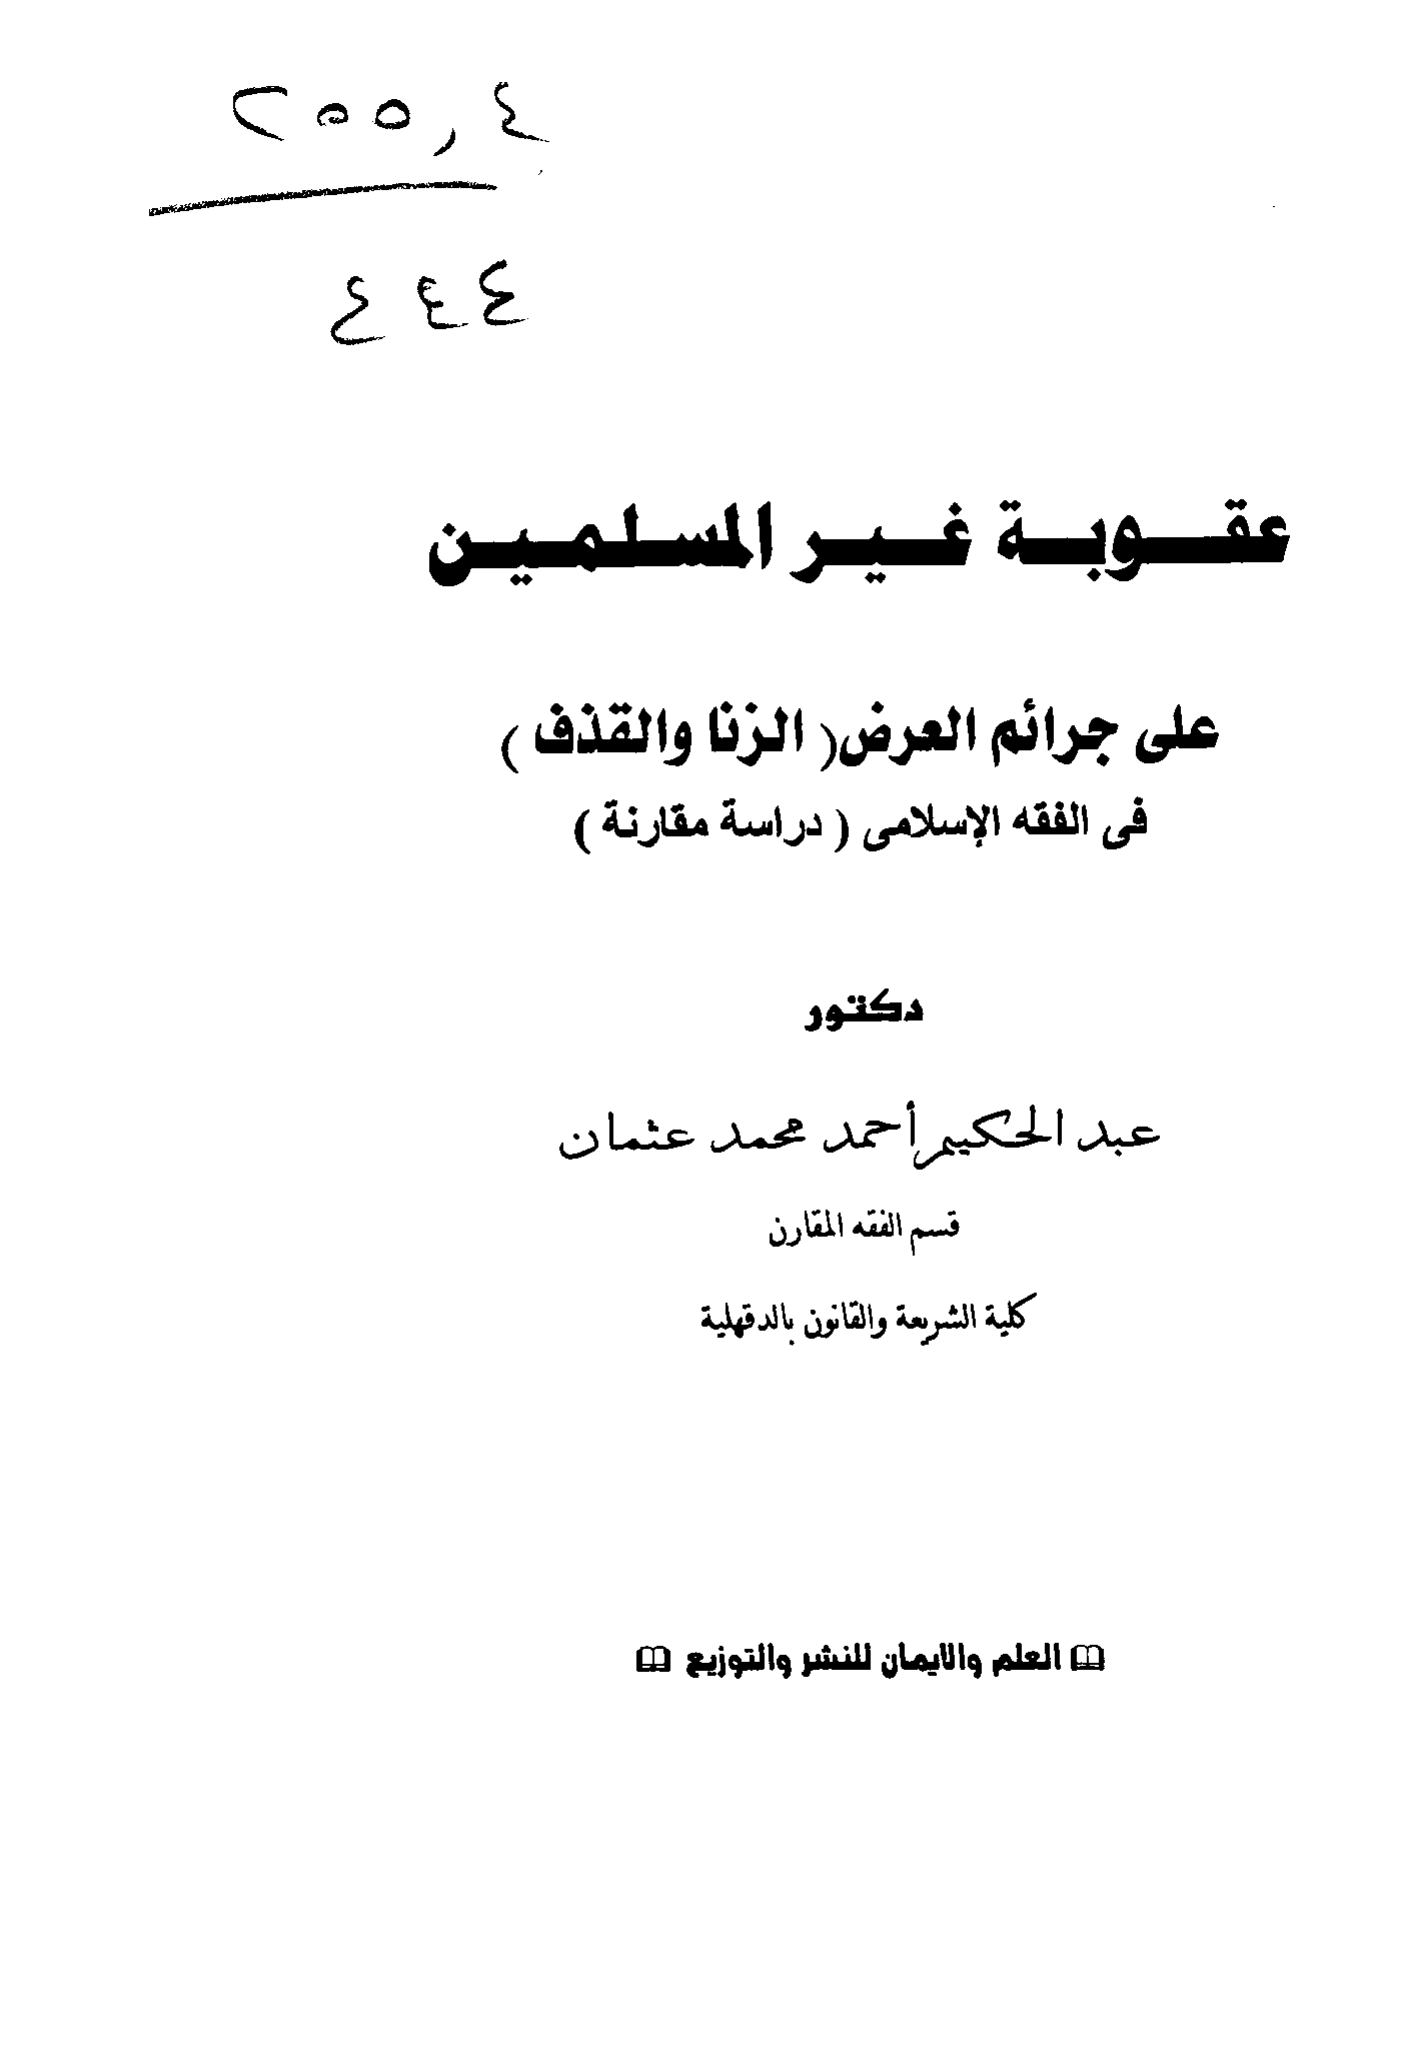 ٢٥٥,٤
٤٤٤
عقوبة غير المسلمين
على جرائم العرض ( الزنا والقذف )
فى الفقه الإسلامى ( دراسة مقارنة )
دكتور
عبد الحكيم أحمد محمد عثمان
قسم الفقه المقارن
كلية الشريعة والقانون بالدقهلية
العلم والايمان للنشر والتوزيع